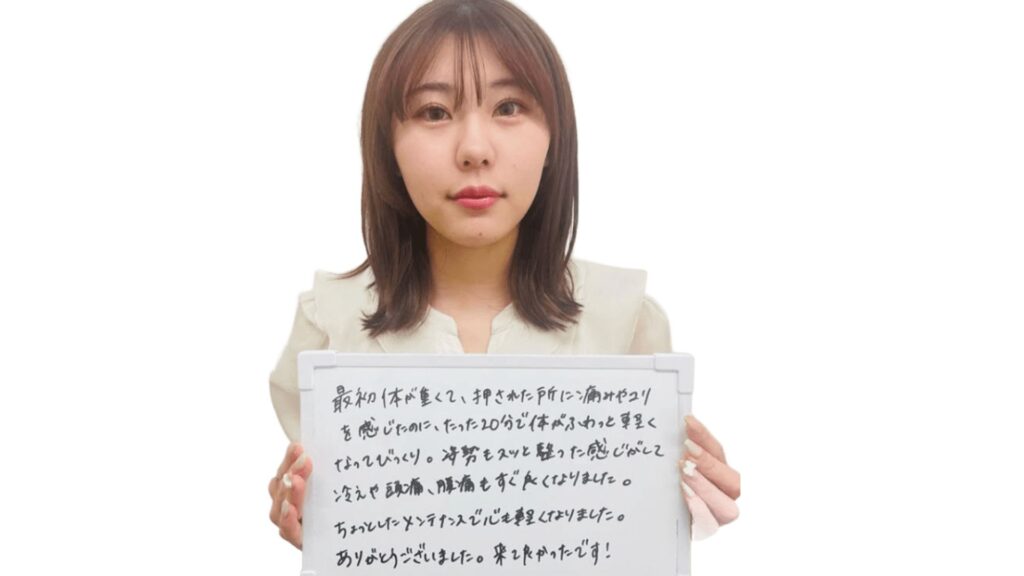 最初体が重くて、押された所に痛みやコリ
を感じたのに、たった20分で体がふわっと軽く
なってびっくり。姿勢もスッと整った感じがして
冷えや頭痛、腰痛もすぐ良くなりました。
ちょっとしたメンテナンスで心も軽くなりました。
ありがとうございました。来て良かったです！